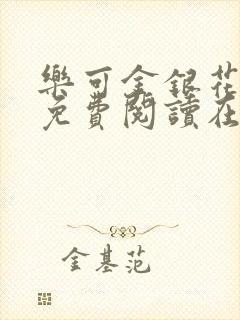 樂可金銀花
免費閱讀在
金基范